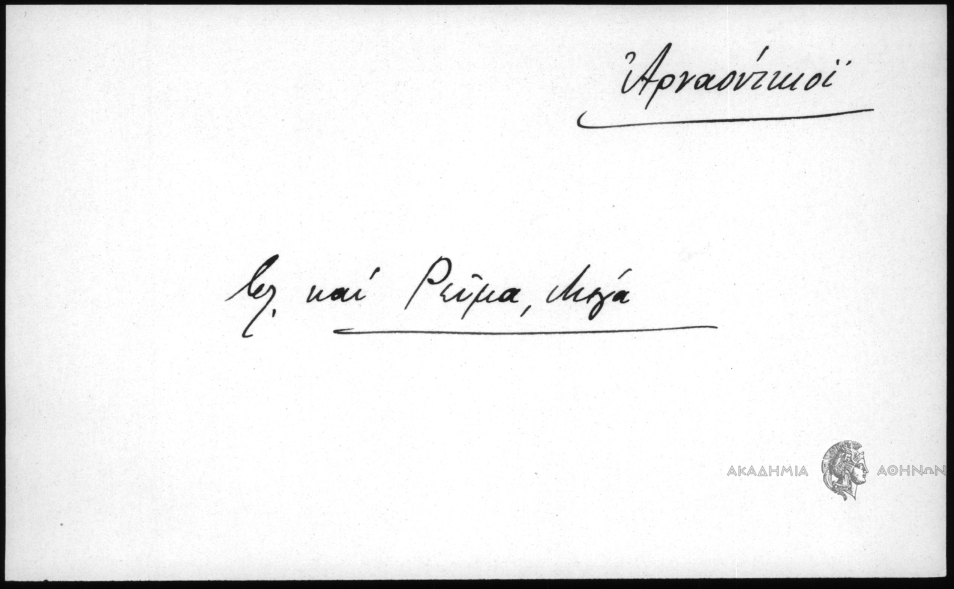 Ἀρναούτκιοϊ
βλ. καί Ρεῦμα, Μέγα
ΑΚΑΔΗΜΙΑ ΑΘΗΝΩΝ